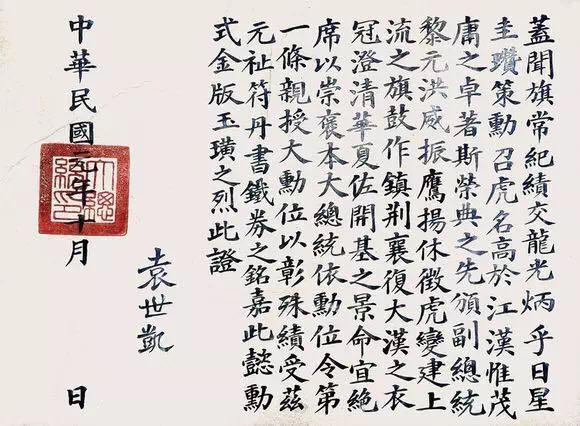 蓋聞旗常紀績交龍光炳乎日星
圭瓚策勳召虎名高於江漢惟茂
庸之卓著斯榮典之先頒副總統
黎元洪威振鷹揚休徵虎變建上
流之旗鼓作鎮荆襄復大漢之衣
冠澄清華夏佐開基之景命宜絶
席以崇褒本大總統依勳位令第
一條親授大勳位以彰殊績受茲
元祉符丹書鐵券之銘嘉此懿勳
式金版玉璜之烈此證
袁世凱
中華民國年十月 日
大總統印